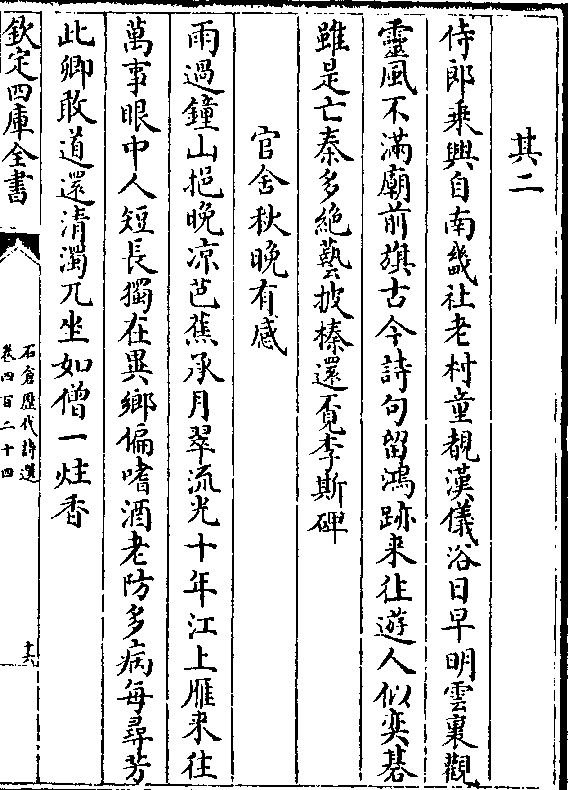 其二
侍郎乘興自南畿社老村童覩漢儀浴日早明雲裏觀
靈風不滿廟前旗古今詩句留鴻跡來往遊人似奕碁
雖是亡秦多絶藝披榛還覔李斯碑
官舍秋晚有感
雨過鐘山挹晚凉芭蕉承月翠流光十年江上雁來往
萬事眼中人短長獨在異鄉偏嗜酒老防多病每尋芳
此卿敢道還清濁兀坐如僧一炷香
欽定四庫全書
石倉歷代詩選
卷四百二十四